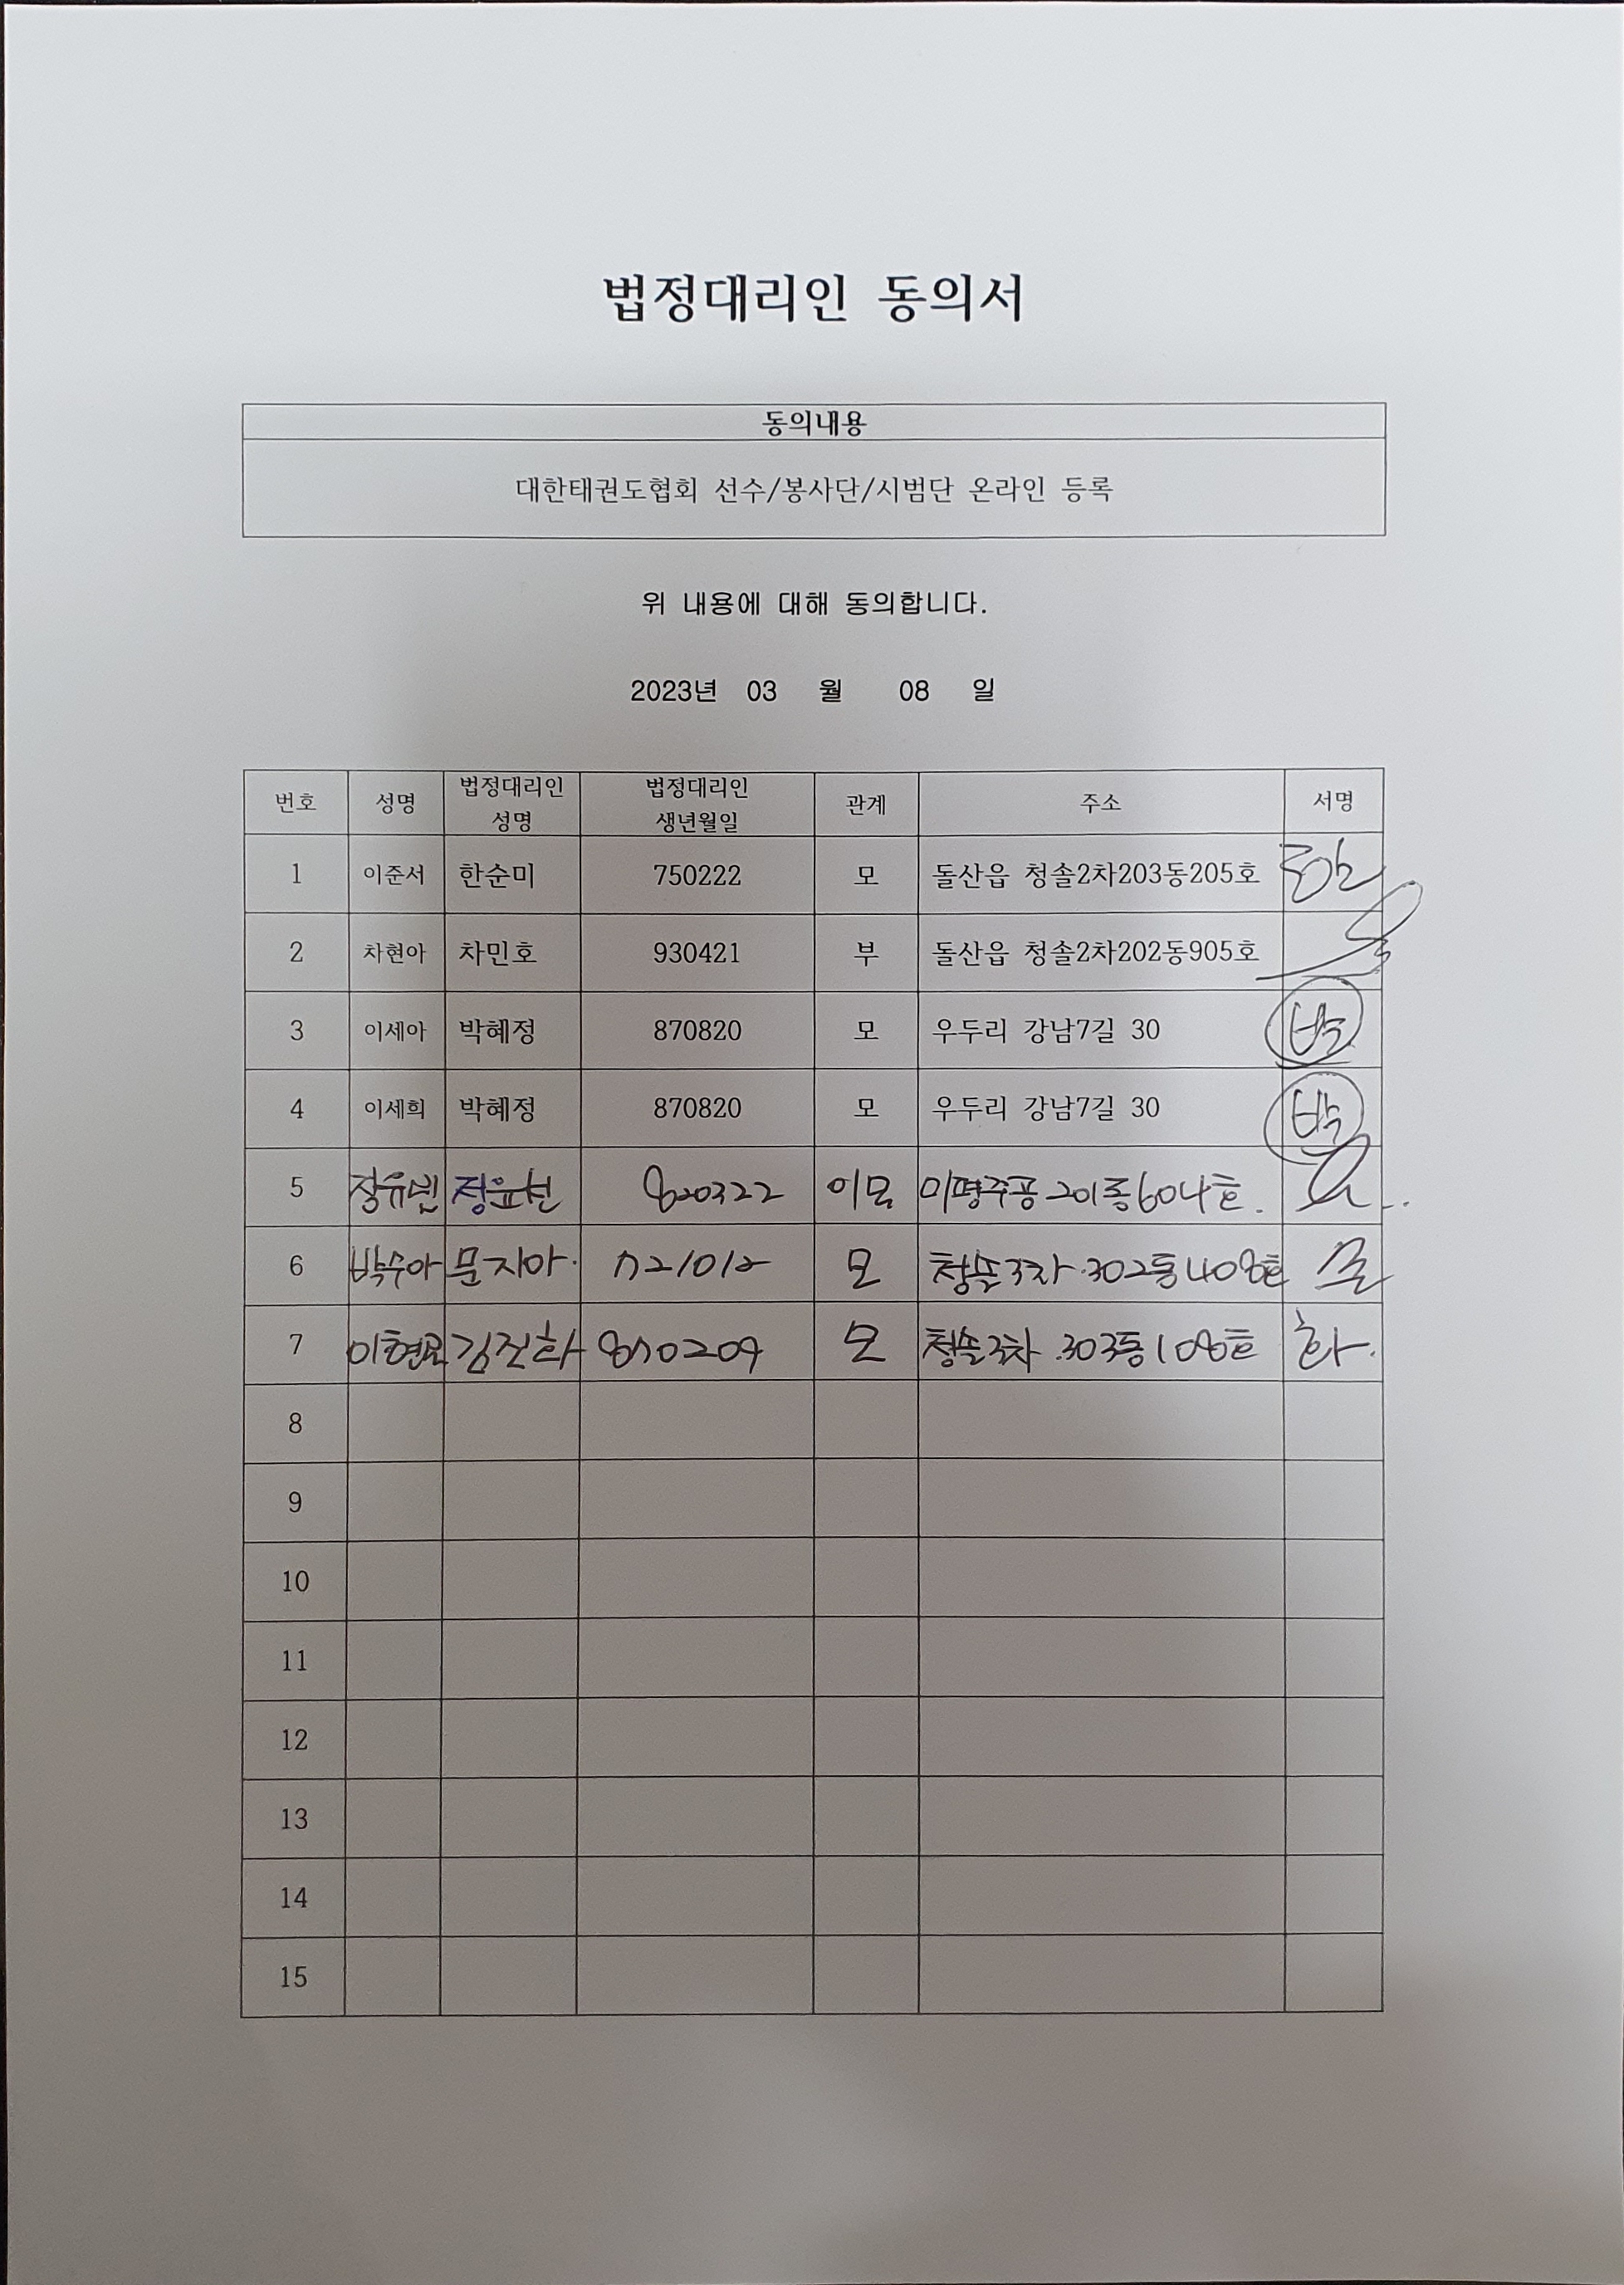 법정대리인 동의서
동의내용
대한태권도협회 선수/봉사단/시범단 온라인 등록
위 내용에 대해 동의합니다.
2023년 03 월 08 일
번호 성명 법정대리인 성명 법정대리인 생년월일 관계 주소 서명
1 이준서 한순미 750222 모 돌산읍 청솔2차203동205호
2 차현아 차민호 930421 부 돌산읍 청솔2차202동905호
3 이세아 박혜정 870820 모 우두리 강남7길 30 박
4 이세희 박혜정 870820 모 우두리 강남7길 30 박
5 장유빈 정윤선 820322 이모 미평주공 201동604호.
6 박수아 문지아. 721012 모 청솔3차.302동408호
7 김진화 870209 모 청솔3차.303동108호 화.
8
9
10
11
12
13
14
15